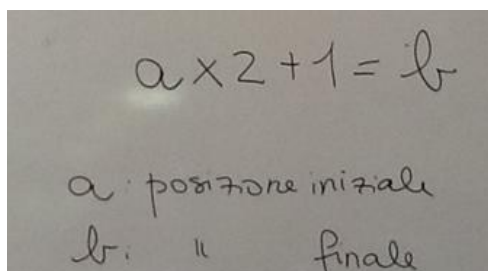 a x 2 + 1 = b
a: posizione iniziale
b: " finale